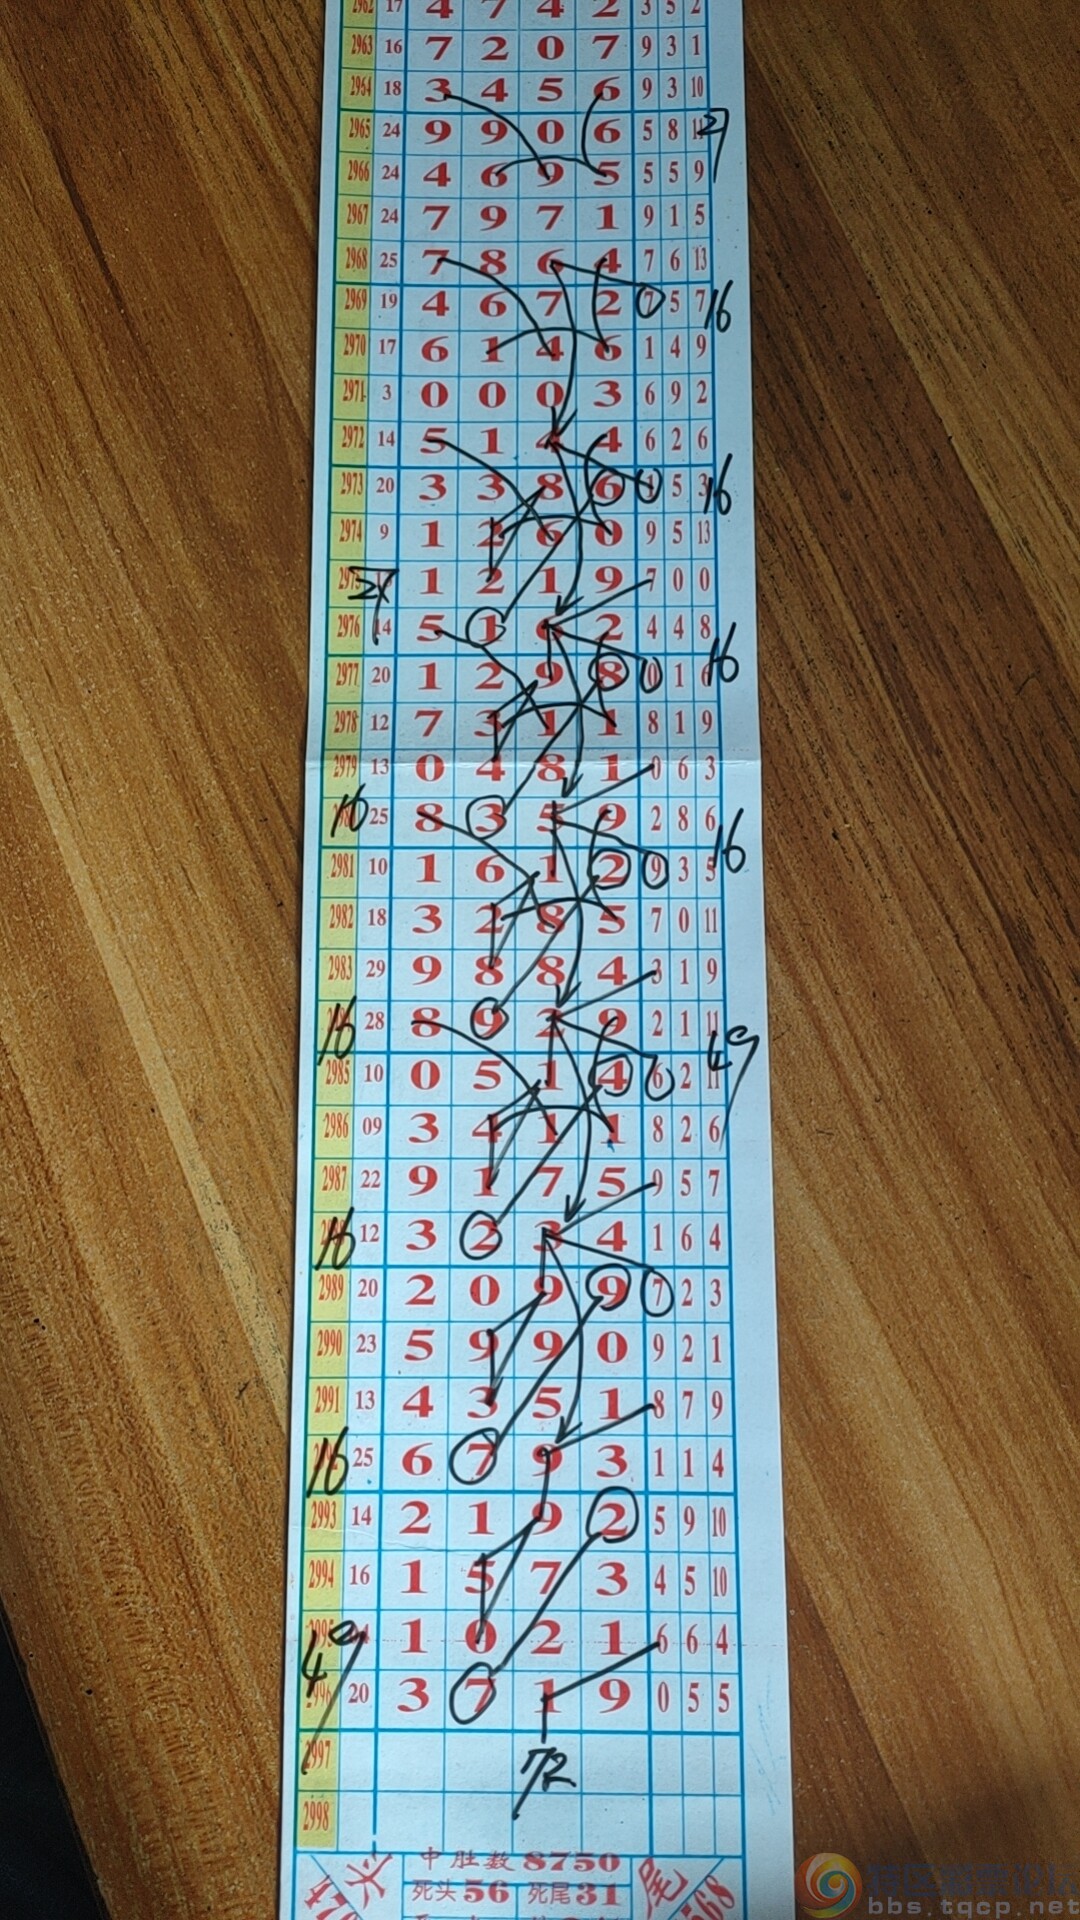 2962 17 4 7 4 2 3 5 2
2963 16 7 2 0 7 9 3 1
2964 18 3 4 5 6 9 3 10
2965 24 9 9 0 6 5 8 11 27
2966 24 4 6 9 5 5 5 9
2967 24 7 9 7 1 9 1 5
2968 25 7 8 6 4 7 6 13
2969 19 4 6 7 2 7 5 7 16
2970 17 6 1 4 6 1 4 9
2971 3 0 0 0 3 6 9 2
2972 14 5 1 4 4 6 2 6
2973 20 3 3 8 6 1 5 3 16
2974 9 1 2 6 0 9 5 13
2975 1 2 1 9 7 0 0
27
2976 14 5 1 6 2 4 4 8
2977 20 1 2 9 8 0 1 6 16
2978 12 7 3 1 1 8 1 9
2979 13 0 4 8 1 0 6 3
16 25 8 3 5 9 2 8 6 16
2981 10 1 6 1 2 9 3 5
2982 18 3 2 8 5 7 0 11
2983 29 9 8 8 4 3 1 9
16 28 8 9 2 9 2 1 11 49
2985 10 0 5 1 4 6 2 11
2986 09 3 4 1 1 8 2 6
2987 22 9 1 7 5 9 5 7
16 12 3 2 3 4 1 6 4
2989 20 2 0 9 9 7 2 3
2990 23 5 9 9 0 9 2 1
2991 13 4 3 5 1 8 7 9
16 25 6 7 9 3 1 1 4
2993 14 2 1 9 2 5 9 10
2994 16 1 5 7 3 4 5 10
2995 1 0 2 1 6 6 4
49
2996 20 3 7 1 9 0 5 5
2997 72
2998
中胜数 8750
头 死头 56 死尾 31 尾
568
bbs.tqcp.net